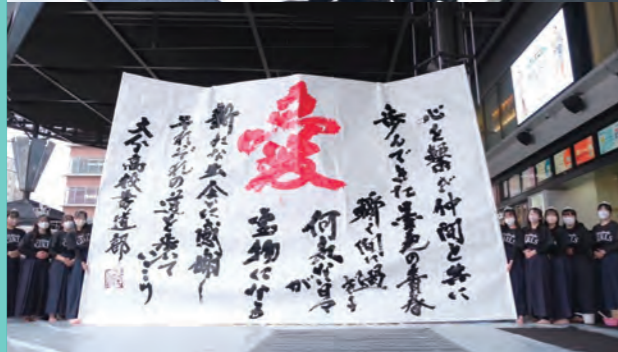 心を繋ぎ仲間と共に
歩んできた墨色の青春
瞬く間に過ぎる
何気ない日々
が
宝物になる
愛
新たな出会に感謝し
それぞれの道を歩いて
いこう
大分高校書道部